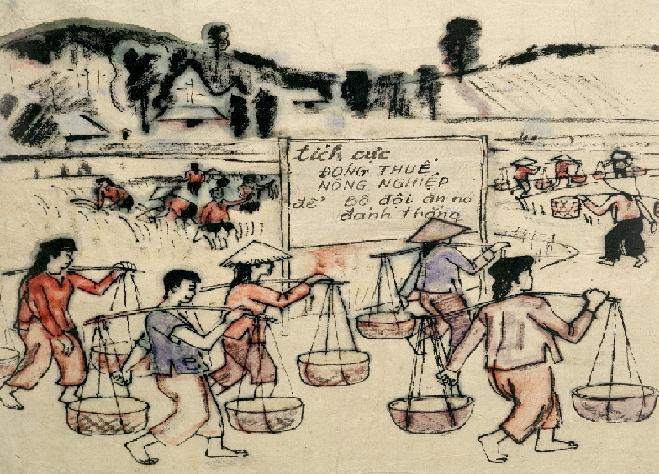 tích cực
ĐÓNG THUẾ
NÔNG NGHIỆP
để bộ đội ăn no
đánh thắng